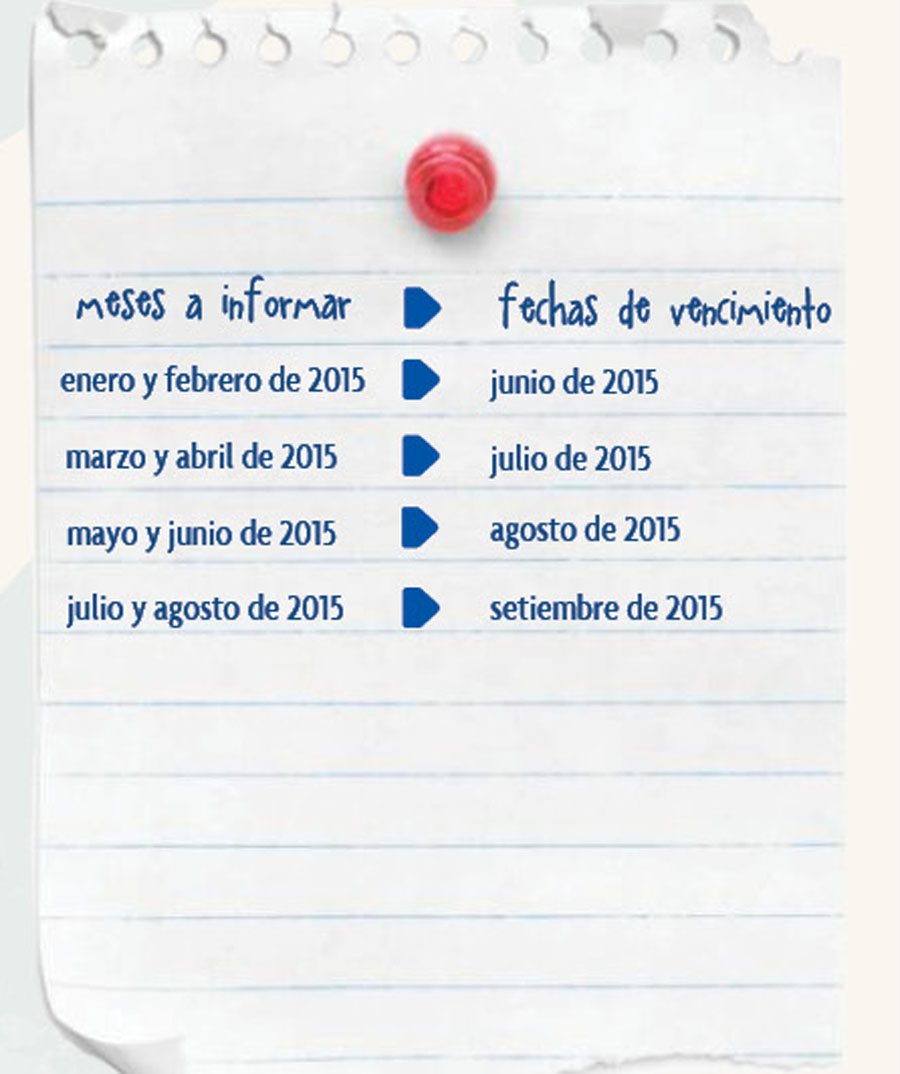 meses a informar fechas de vencimiento
enero y febrero de 2015 junio de 2015
marzo y abril de 2015 julio de 2015
mayo y junio de 2015 agosto de 2015
julio y agosto de 2015 setiembre de 2015